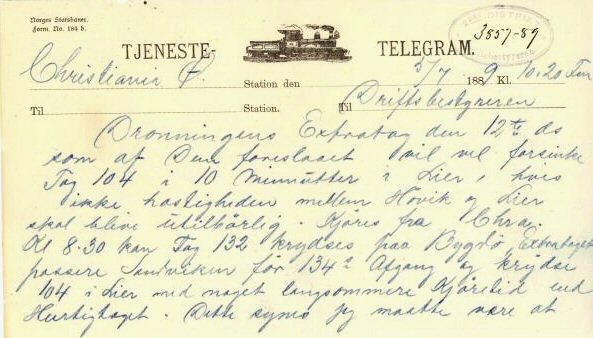 Norges Statsbaner.
Form. No. 184 b.
3857-89
TJENESTE- TELEGRAM.
Christiania Ø. Station den 5/7 1889 Kl. 10.20 Fm
Til Station. Til Driftsbestyreren
Dronningens Extratog den 12te ds
som af Dem foreslaaet vil vel forsinke
Tog 104 i 10 Minutter i Lier, hvis
ikke hastigheden mellem Høvik og Lier
skal blive utilbørlig. Kjøres fra Chra
Kl 8.30 kan Tog 132 krydses paa Bygdø, Extratoget
passere Sandviken før 134s Afgang og krydse
104 i Lier med noget langsommere Kjøretid end
Hurtigtoget. Dette synes jeg maatte være at